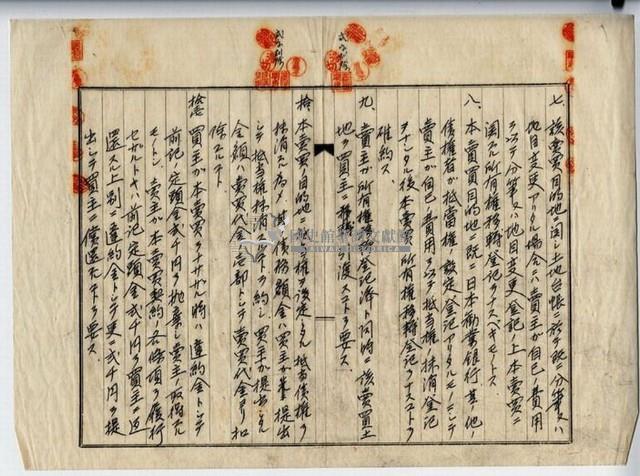 七、該賣買目的地ニ関シ土地台帳ニ於テ既ニ分筆又ハ
地目変更アリタル場合ニハ賣主ガ自己ノ費用
ヲ以テ分筆又ハ地目変更登記ノ上本賣買ニ
関スル所有権移轉登記ヲナスベキモノトス
八、本賣買目的地ニ既ニ日本勧業銀行其ノ他ノ
債権者ガ抵當権ノ設定登記アリタルモノニシテ
賣主ガ自己ノ費用ヲ以テ抵当権ノ抹消登記
ヲナシタル後本賣買ノ所有権移轉登記ヲナスコトヲ
確約ス
九、賣主ガ所有権移轉登記済ト同時ニ該賣買土
地ヲ買主ニ引渡スコトヲ要ス
拾、本賣買ノ目的地ニ抵当権ヲ設定シタル抵当債権ヲ
抹消スル為メ債務額金ハ買主ガ提出
シテ抵当権抹消スルコトヲ約シ買主ガ提出シタル
金額ハ賣買代金ノ壱部トシテ賣買代金ヨリ扣
除スルコト
拾壱、買主ガ本賣買ヲナサザル時ハ違約金トシテ
前記ノ定頭金弐千円ヲ抛棄シ賣主ノ取得タル
モノトシ賣主ガ本賣買契約ノ各條項ヲ履行
セザルトキハ前記定頭金弐千円ヲ買主ニ返
還スル上別ニ違約金トシテ更ニ弐千円ヲ提
出シテ買主ニ償還スルコトヲ要ス
國史館臺灣文獻館
TAIWAN HISTORICA